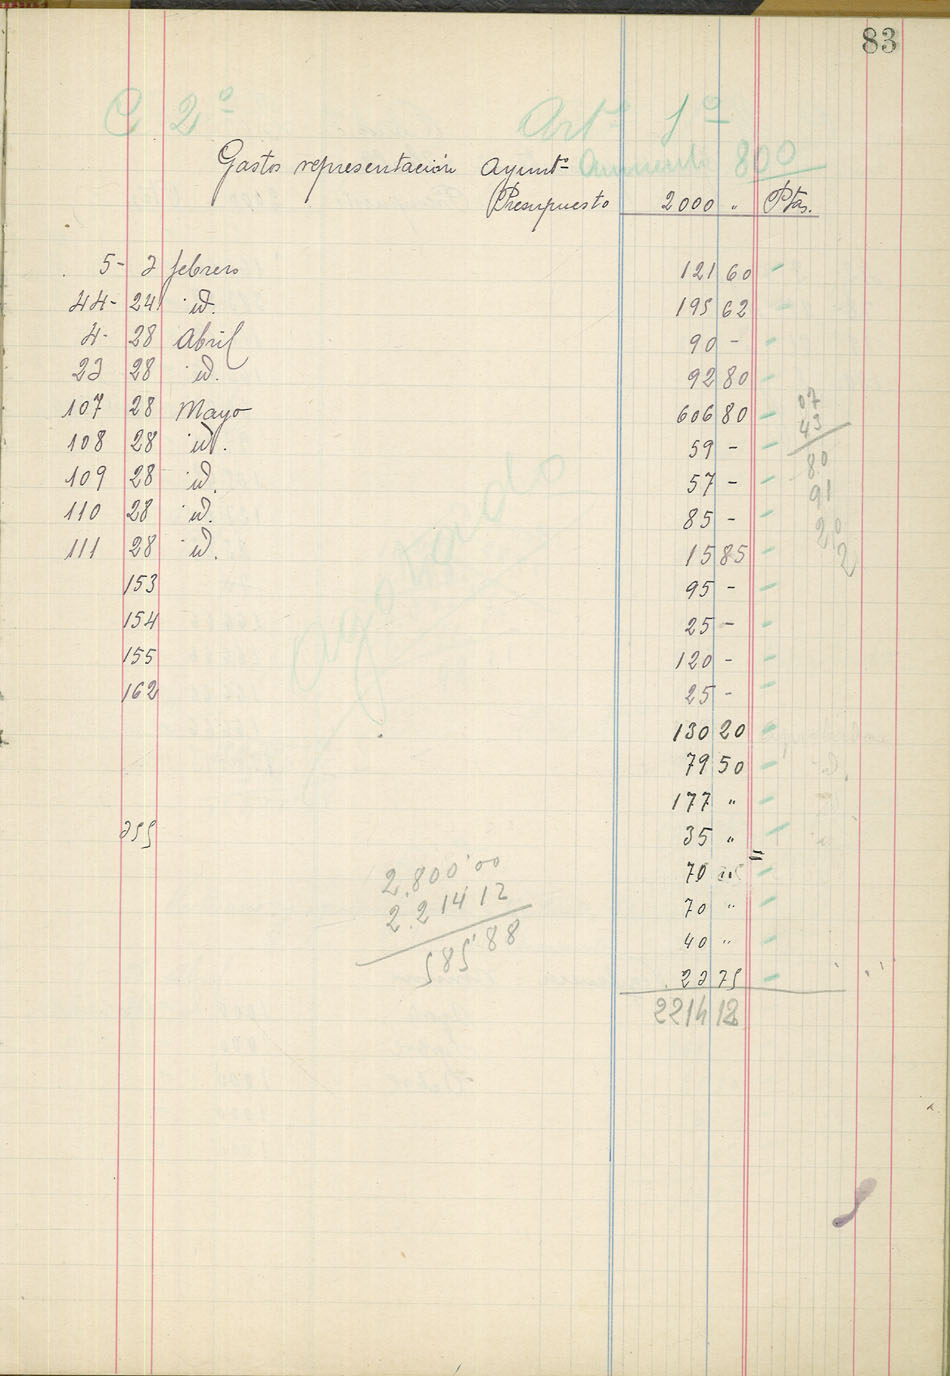 83
C 2º Artº 1º
Gastos representación Ayuntº Aumento 800
Presupuesto 2000 " Ptas.
5- 2 febrero 121 60
44- 24 id. 195 62
4- 28 Abril 90 -
23 28 id. 92 80
107 28 Mayo 606 80
108 28 id. 59 -
109 28 id. 57 -
110 28 id. 85 -
111 28 id. 15 85
153 95 -
154 25 -
155 120 -
162 25 -
130 20
79 50
177 "
255 35 "
70
70 "
40 "
22 75
2214 12
07
43
80
91
20
2
agotado
2.800'00
2.214 12
585'88